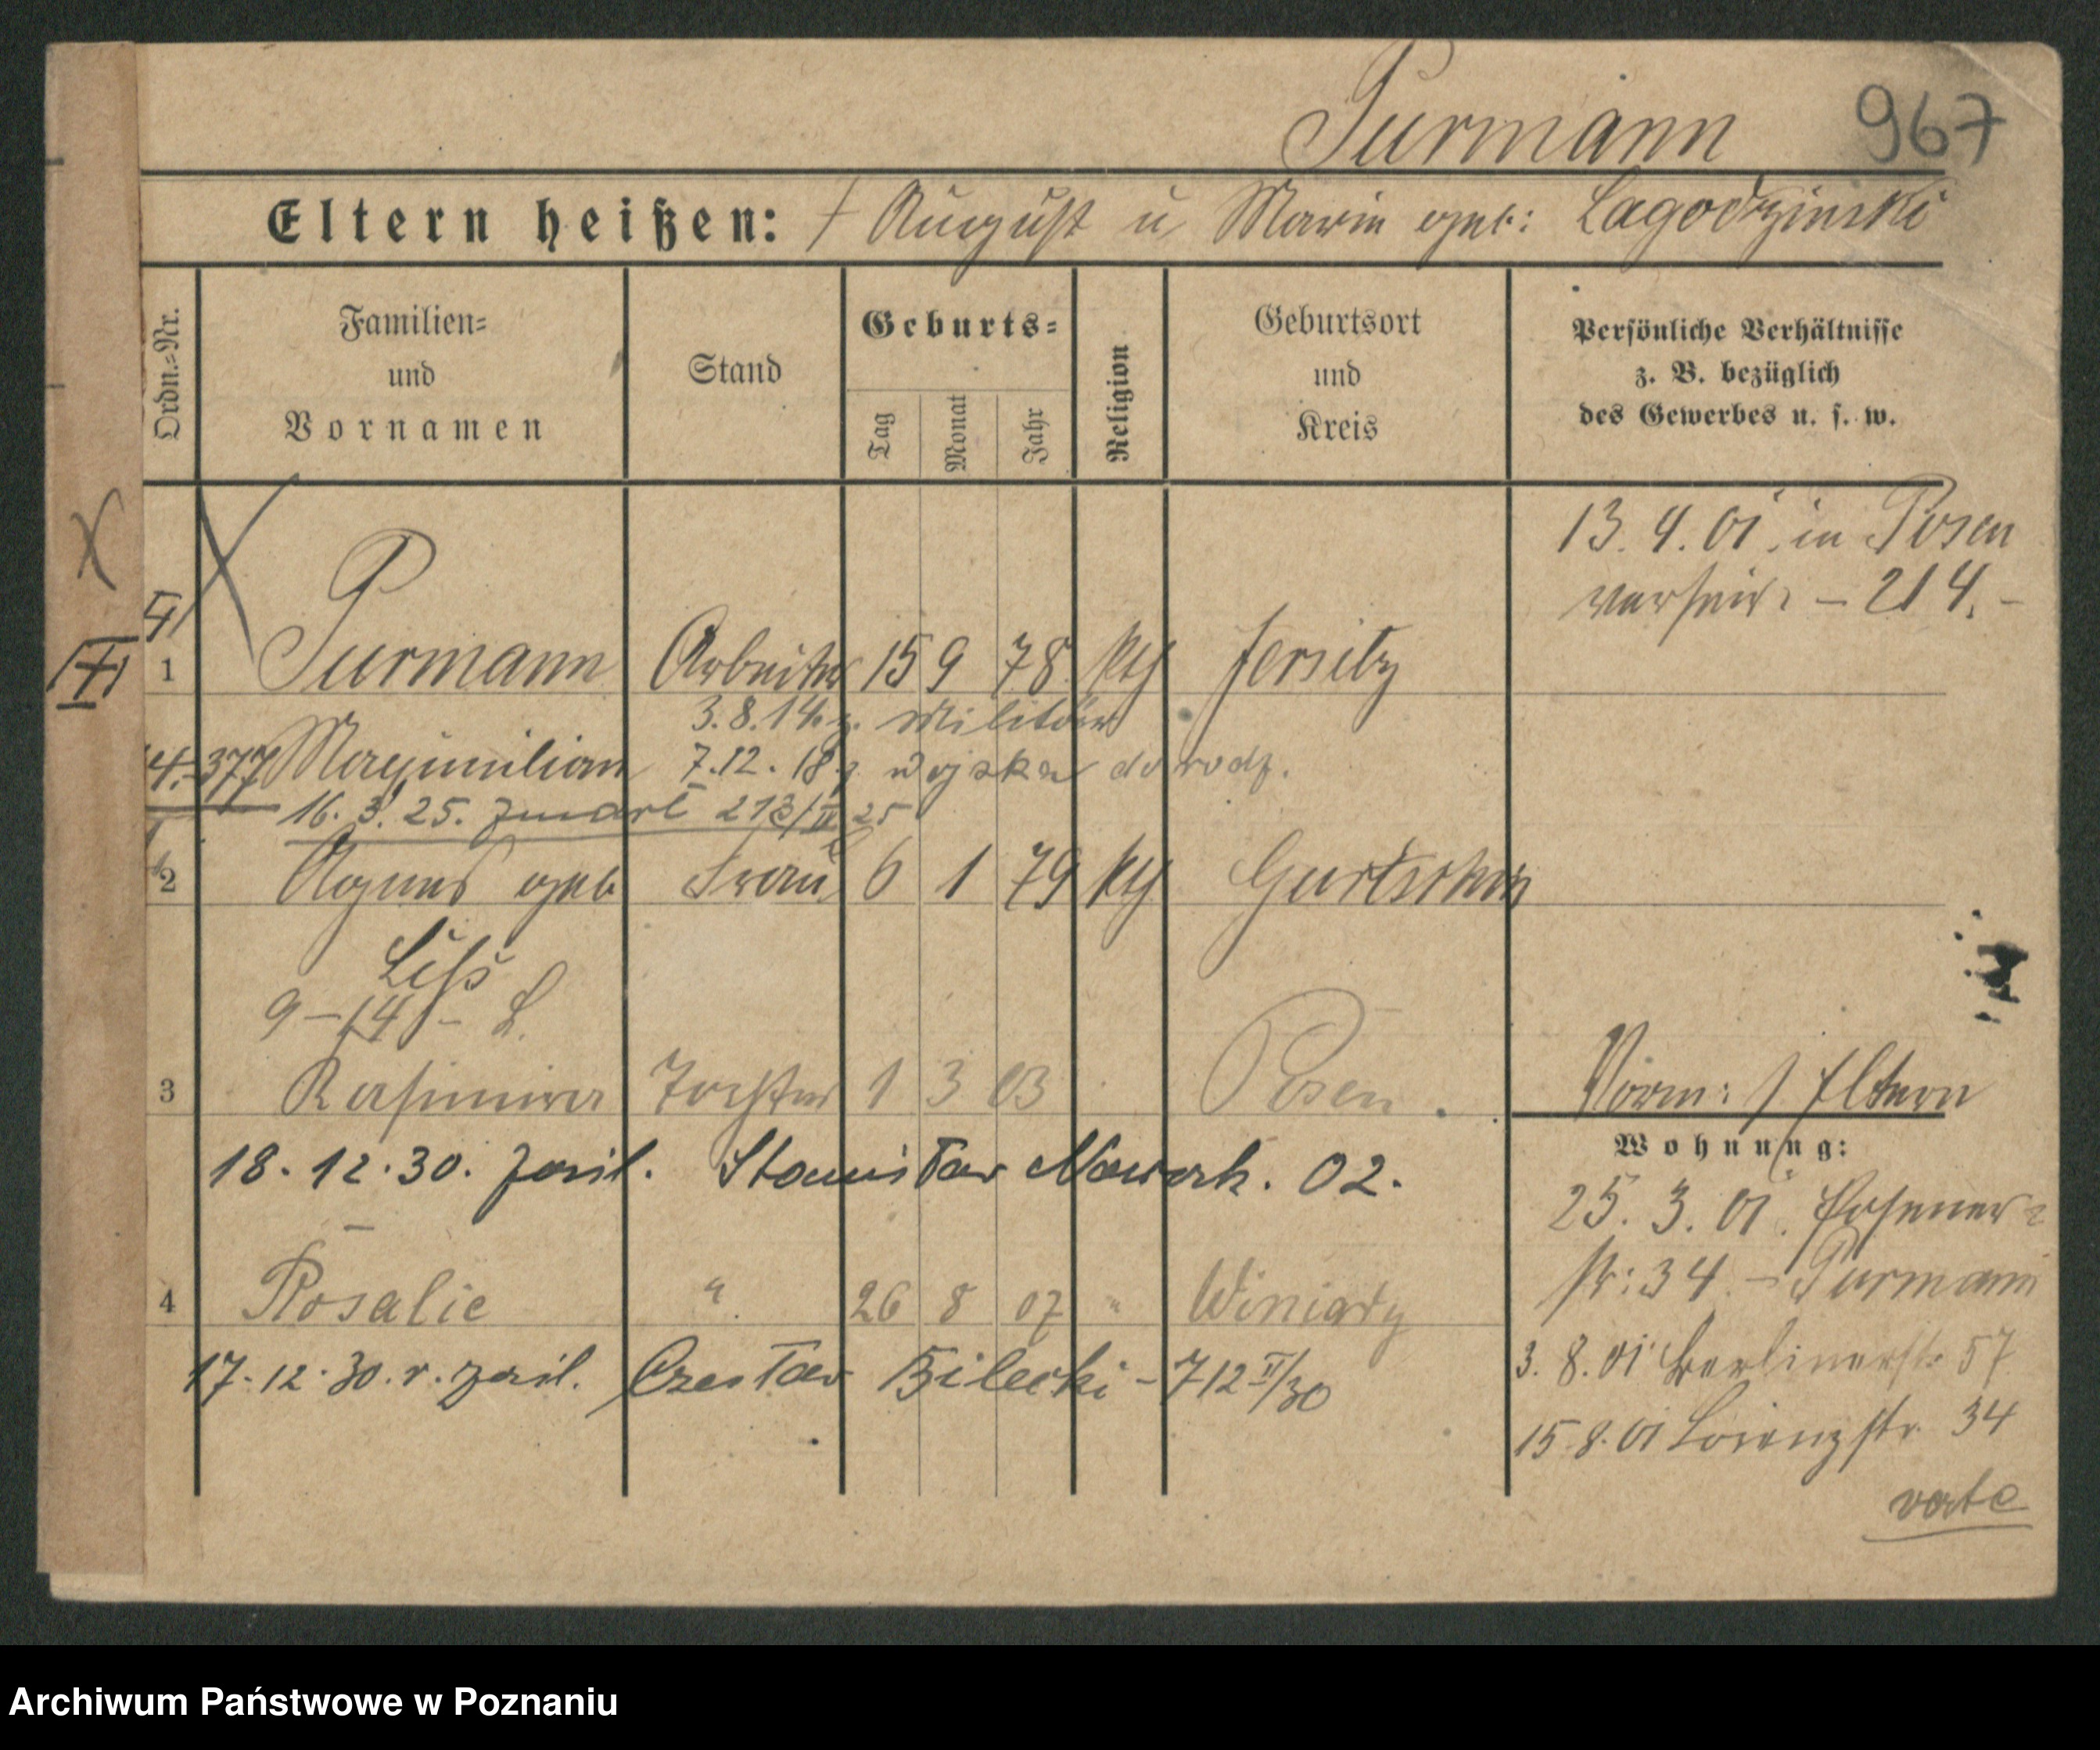 Purmann 967
Eltern heißen: † August u Marie geb: Lagodzinski
Ordn.=Nr.
Familien= und Vornamen
Stand
Geburts=
Tag
Monat
Jahr
Religion
Geburtsort und Kreis
Persönliche Verhältnisse z. B. bezüglich des Gewerbes u. s. w.
13. 4. 01. in Posen
verheir. – 214. –
1 Purmann Arbeiter 15 9 78 kth Jersitz
3. 8. 14. z. Militär
4.377 Maximilian 7.12.18. z wojska do rodz.
16. 3. 25. zmarł 213/II 25
2 Agnes geb Frau 6 1 79 kth Gurtschin
Liss
9–14 –
3 Kasimira Tochter 1 3 03 Posen.
Vorm: / Eltern
Wohnung:
18.12.30. zaśl. Stanisław Nowak. 02.
25. 3. 01. Posener=
str: 34. – Purmann
4 Rosalie " 26 8 07 " Winiary
3. 8. 01 Berlinerstr. 57
17.12.30. r. zaśl. Czesław Bilecki – 712 II/30
15.8.01 34
verte
Archiwum Państwowe w Poznaniu